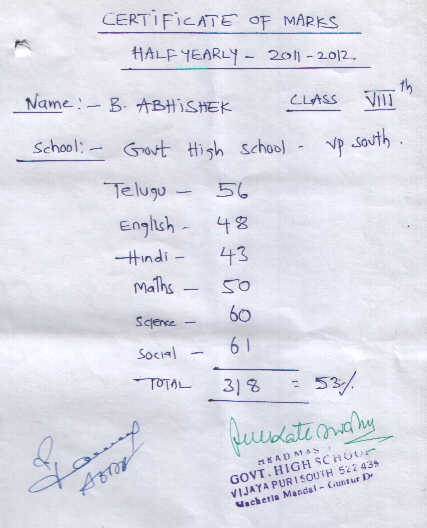 CERTIFICATE OF MARKS
HALF YEARLY - 2011-2012.
Name:- B. ABHISHEK CLASS VIII th
School:- Govt High school - VP south.
Telugu - 56
English - 48
Hindi - 43
Maths - 50
Science - 60
Social - 61
TOTAL 318 = 53%
HEAD MASTER
GOVT. HIGH SCHOOL
VIJAYAPURI SOUTH 522 439
Macherla Mandal - Guntur Dt